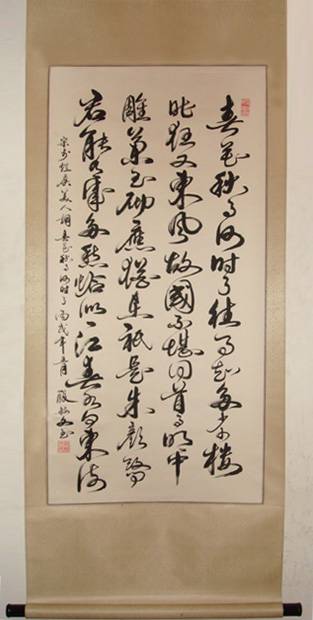 春花秋月何时了往事知多少小楼
昨夜又東風故國不堪回首月明中
雕闌玉砌應猶在祇是朱顔改問
君能有幾多愁恰似一江春水向東流
李煜虞美人詞春花秋月何时了丙戌年 書